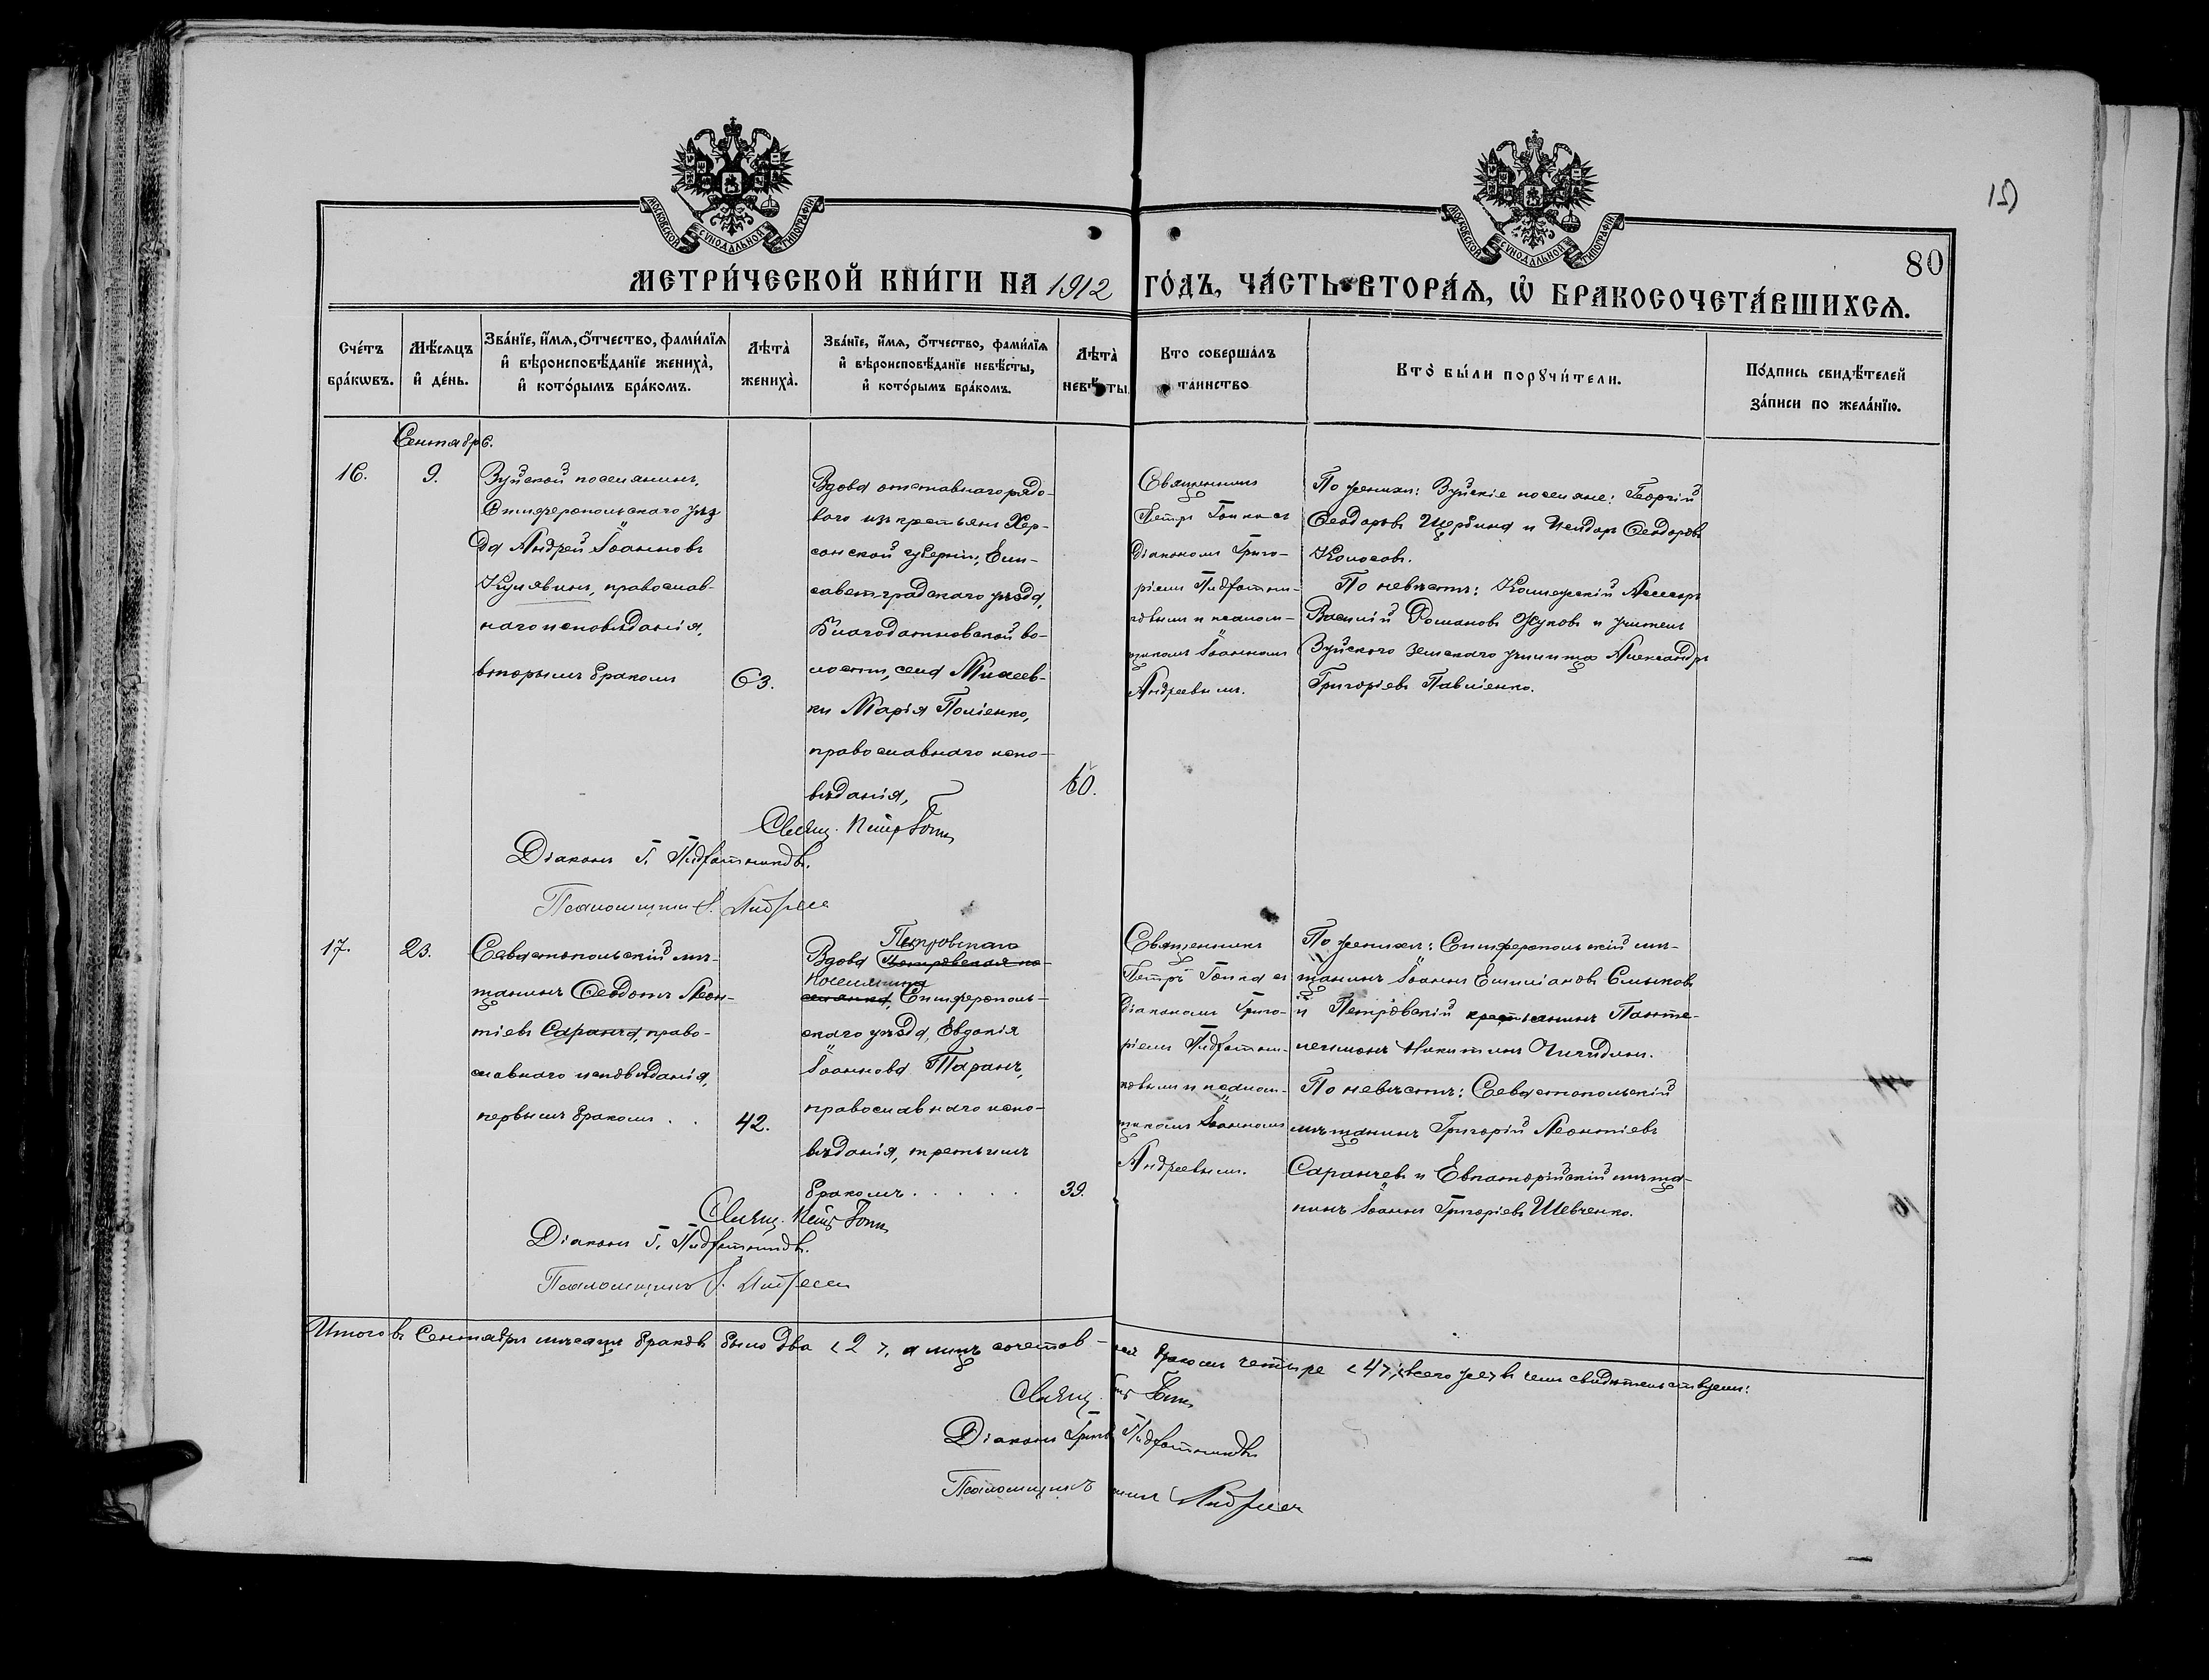 МОСКОВСКОЙ СѴНОДАЛЬНОЙ ТИПОГРАФІИ
МОСКОВСКОЙ СѴНОДАЛЬНОЙ ТИПОГРАФІИ
80
МЕТРИ́ЧЕСКОЙ КНИ́ГИ НА 1912 ГО́ДЪ, ЧА́СТЬ ВТОРА́Ѧ, Ѽ БРАКОСОЧЕТА́ВШИХСѦ.
Сче́тъ
бра́кѡвъ.
Мѣ́сяцъ
и҆ де́нь.
Зва́нїе, и҆́мѧ, о҆́тчество, фами́лїѧ
и҆ вѣроисповѣ́данїе жениха̀,
и҆ кото́рымъ бра́комъ.
Лѣта̀
жениха̀.
Зва́нїе, и҆́мѧ, о҆́тчество, фами́лїѧ
и҆ вѣроисповѣ́данїе невѣ́сты,
и҆ кото́рымъ бра́комъ.
Лѣта̀
невѣ́сты.
Кто соверша́лъ
та́инство
Кто̀ бы́ли порꙋчи́тели.
По́дпись свидѣ́телей
за́писи по жела́нїю.
Сентябрь.
16.
9.
Зуйской поселянинъ,
Симферопольскаго уѣз
да Андрей Іоанновъ
Кулявинъ, православ-
наго исповѣданія,
вторымъ бракомъ
63.
Вдова отставного рядо-
вого изъ крестьянъ Хер-
сонской губерніи, Ели-
саветградскаго уѣзда,
Благодатновской во-
лости, села Михеев-
ки Марія Поліенко,
православнаго испо-
вѣданія,
60.
Священникъ
Петръ Гопка съ
діакономъ Григо-
ріемъ
и псалом-
щикомъ Іоанномъ
Андреевымъ.
По женихѣ: Зуйскіе поселяне: Георгій
Ѳеодоровъ Щербина и Исидоръ Ѳеодоровъ
Колосовъ.
По невѣстѣ: Коллежскій Ассесоръ
Василій Романовъ Жуковъ и учитель
Зуйского земскаго училища Александръ
Григоріевъ Павленко.
Свящ. Петръ Гопка
Діаконъ Г.
Псаломщикъ І. Андреев
17.
23.
Севастопольскій мѣ-
щанинъ Ѳеодотъ Леон-
тіевъ Саранча, право-
славнаго исповѣданія,
первымъ бракомъ . .
42.
Петровскаго
Вдова Петровская по-
поселянина
селянка, Симферополь-
скаго уѣзда, Евдокія
Іоаннова Таранъ,
православнаго испо-
вѣданія, третьимъ
бракомъ . . . . .
39.
Священникъ
Петръ Гопка съ
діакономъ Григо-
ріемъ
и псалом-
щикомъ Іоанномъ
Андреевымъ.
По женихѣ: Симферопольскій мѣ-
щанинъ Іоаннъ Емиліановъ Смыковъ
и Петровскій крестьянинъ Панте-
леимонъ Никитинъ
По невѣстѣ: Севастопольскій
мѣщанинъ Григорій Леонтіевъ
Саранчевъ и Евпаторійскій мѣща-
нинъ Іоаннъ Григоріевъ Шевченко.
Свящ. Петръ Гопка
Діаконъ Г.
Псаломщикъ І. Андреев
Итого въ Сентябрѣ мѣсяцѣ браковъ было два <2>, а лицъ сочетав- бракомъ четыре <4>, въ чемъ свидѣтельствуемъ:
Свящ. Гопка
Діаконъ
Псаломщикъ Андреев